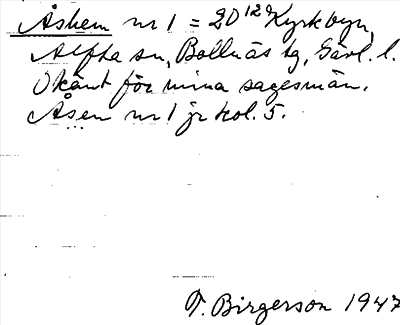 Åshem nr 1 = 2D¹²⁹ Kyrkbyn,
Alfta sn, Bollnäs tg, Gävl. l.
Okänt för mina sagesmän.
Åsen nr 1 jr kol. 5.
T. Birgerson 1947